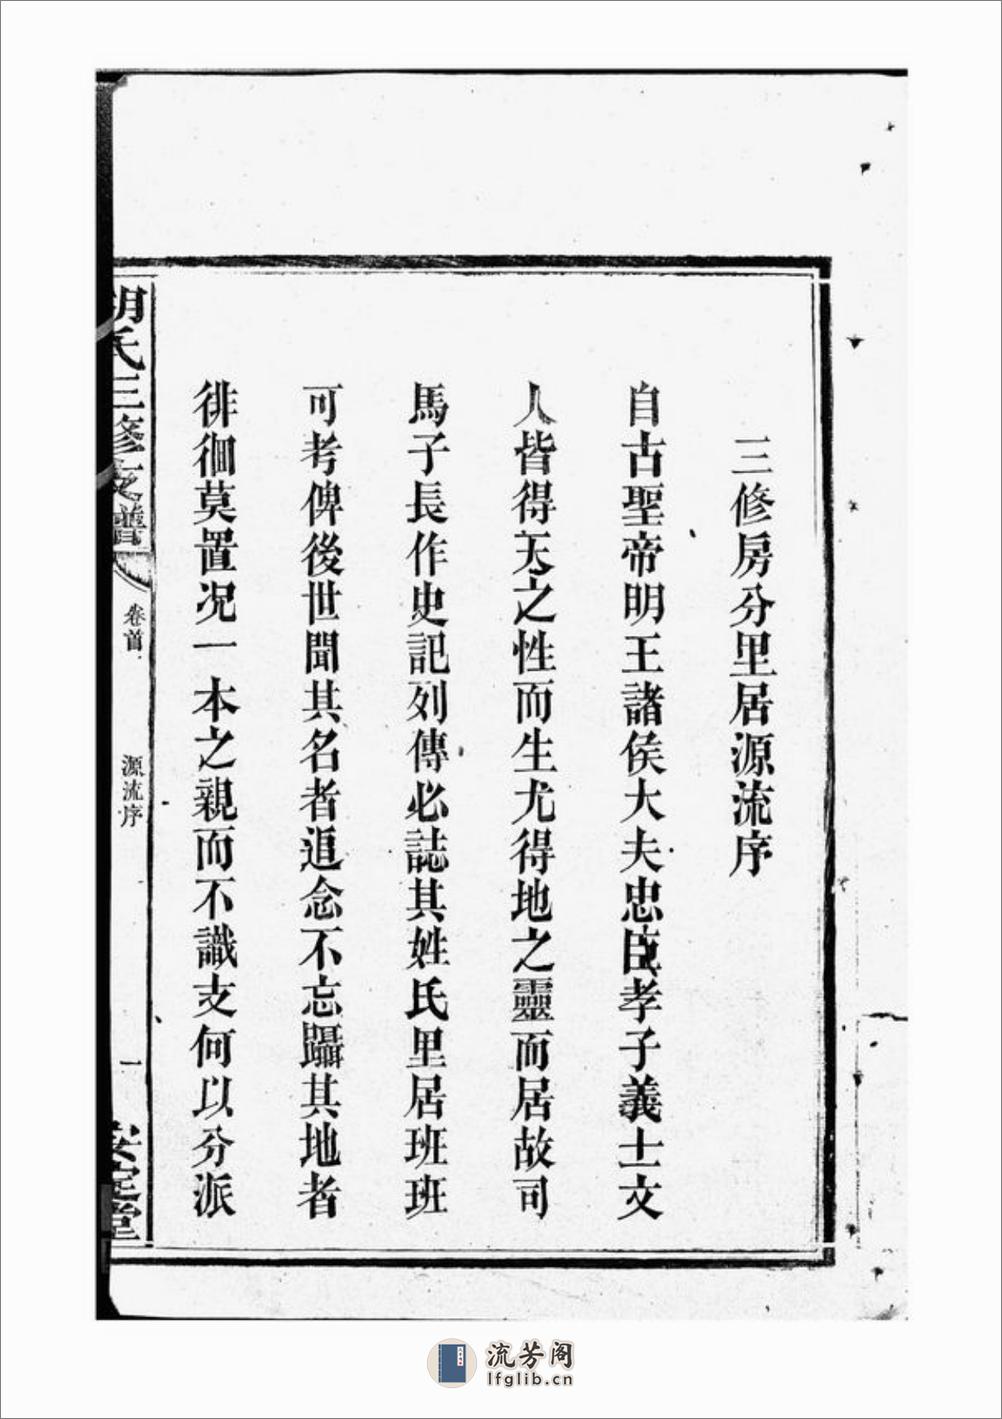 三修房分里居源流序
自古聖帝明王諸侯大夫忠臣孝子義士文
人皆得天之性而生尤得地之靈而居故司
馬子長作史記列傳必誌其姓氏里居班班
可考俾後世聞其名者追念不忘躡其地者
徘徊莫置况一本之親而不識支何以分派
胡氏三修支譜
卷首
源流序
一
安定堂
流芳阁
lfglib.cn